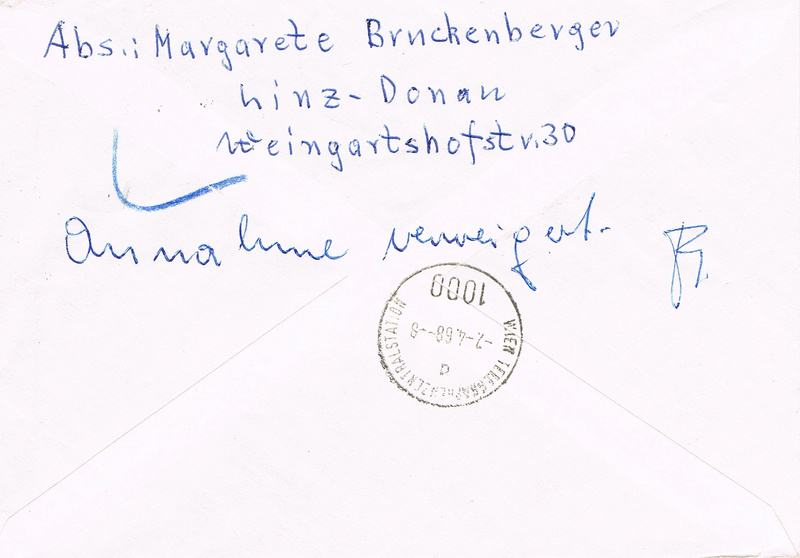 Abs.: Margarete Bruckenberger
Linz-Donau
Weingartshofstr.30
Annahme verweigert.
1000
WIEN TELEGRAPHENZENTRALSTATION
-2.-4.68--8